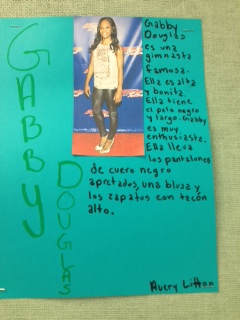 GABBY
DOUGLAS
Gabby
Douglas
es una
gimnasta
famosa.
Ella es alta
y bonita.
Ella tiene
el pelo negro
y largo. Gabby
es muy
enthusiasta.
Ella lleva
los pantalones
de cuero negro
apretados, una blusa y
los zapatos con tacón
alto.
Avery Lifton